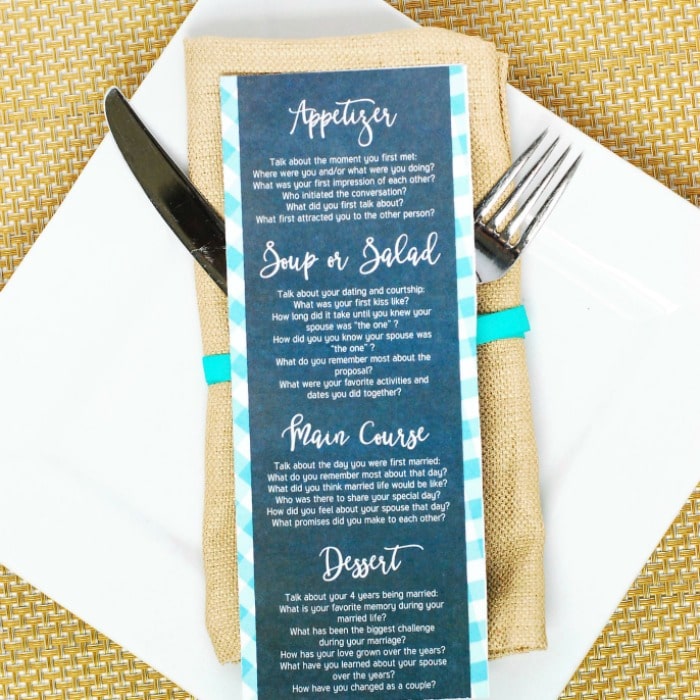 Appetizer
Talk about the moment you first met:
Where were you and/or what were you doing?
What was your first impression of each other?
Who initiated the conversation?
What did you first talk about?
What first attracted you to the other person?
Soup or Salad
Talk about your dating and courtship:
What was your first kiss like?
How long did it take until you knew your
spouse was "the one" ?
How did you know your spouse was
"the one" ?
What do you remember most about the
proposal?
What were your favorite activities and
dates you did together?
Main Course
Talk about the day you were first married:
What do you remember most about that day?
What did you think married life would be like?
Who was there to share your special day?
How did you feel about your spouse that day?
What promises did you make to each other?
Dessert
Talk about your 4 years being married:
What is your favorite memory during your
married life?
What has been the biggest challenge
during your marriage?
How has your love grown over the years?
What have you learned about your spouse
over the years?
How have you changed as a couple?